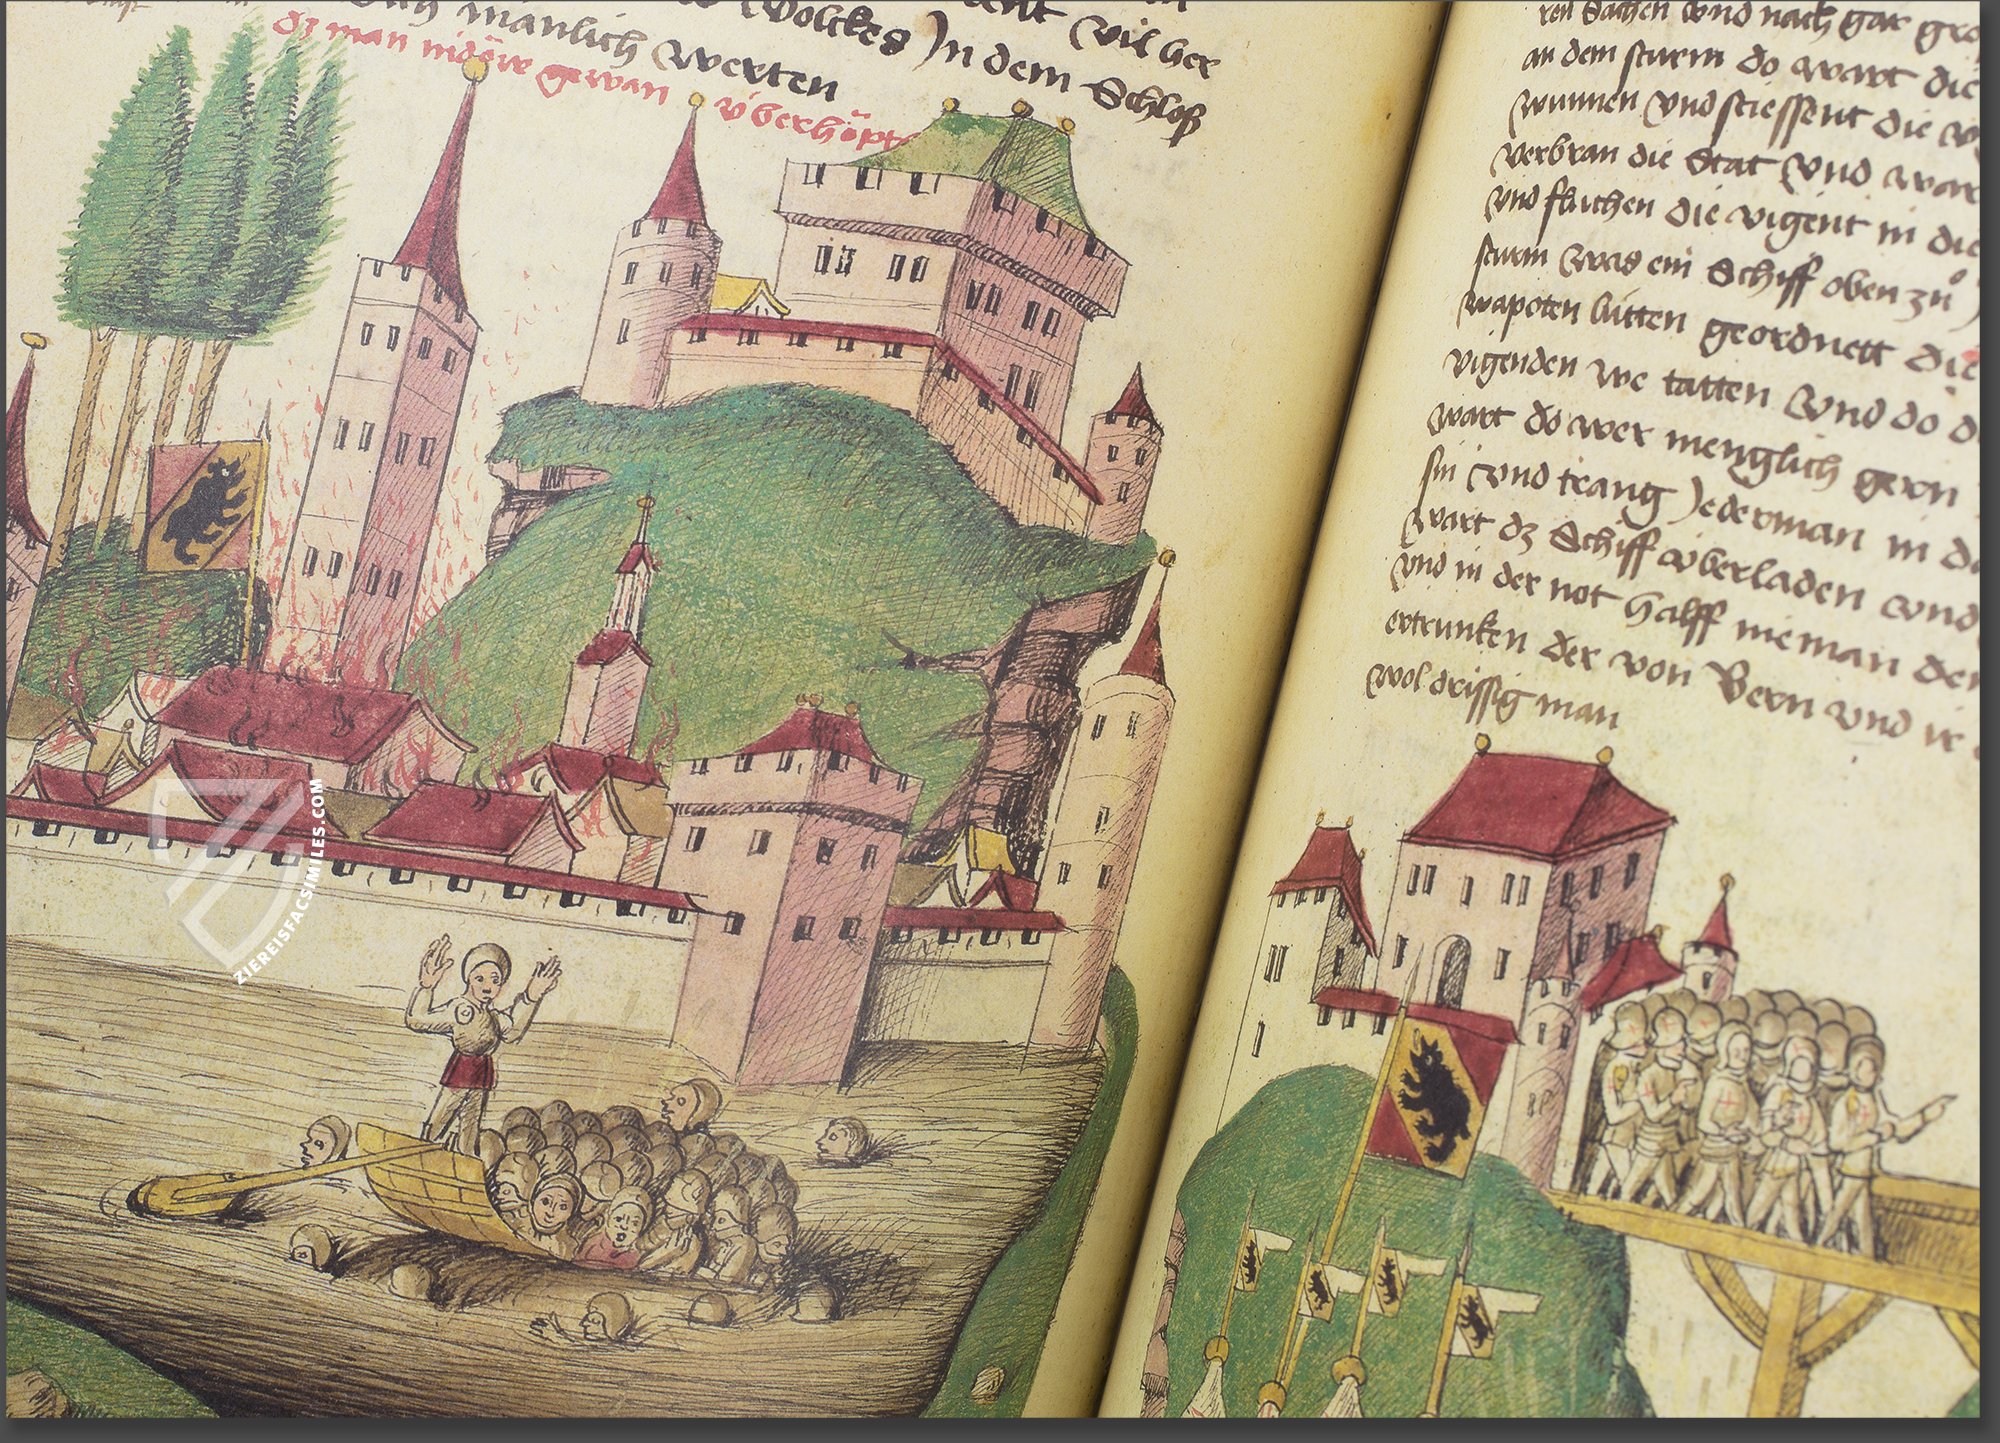 Wolckes In dem Schloß
manlich werten
dz man nider gewan
überhöpt
ren sachen vnd nach gar gro
an dem sturm do wart die
wunnen vnd stiessent die
verbran die Stat vnd war
vnd fluchen die vigent in die
sturm was ein Schiff oben zů
wapoten lütten geordnett die
vigenden we tatten vnd do d
wart do wer menglich gern
sin vnd trang Jederman in d
wart dz Schiff überladen vnd
vnd in der not halff nieman de
ertrunken der von Bern vnd ir
wol drissig man
ZIEREISFACSIMILES.COM